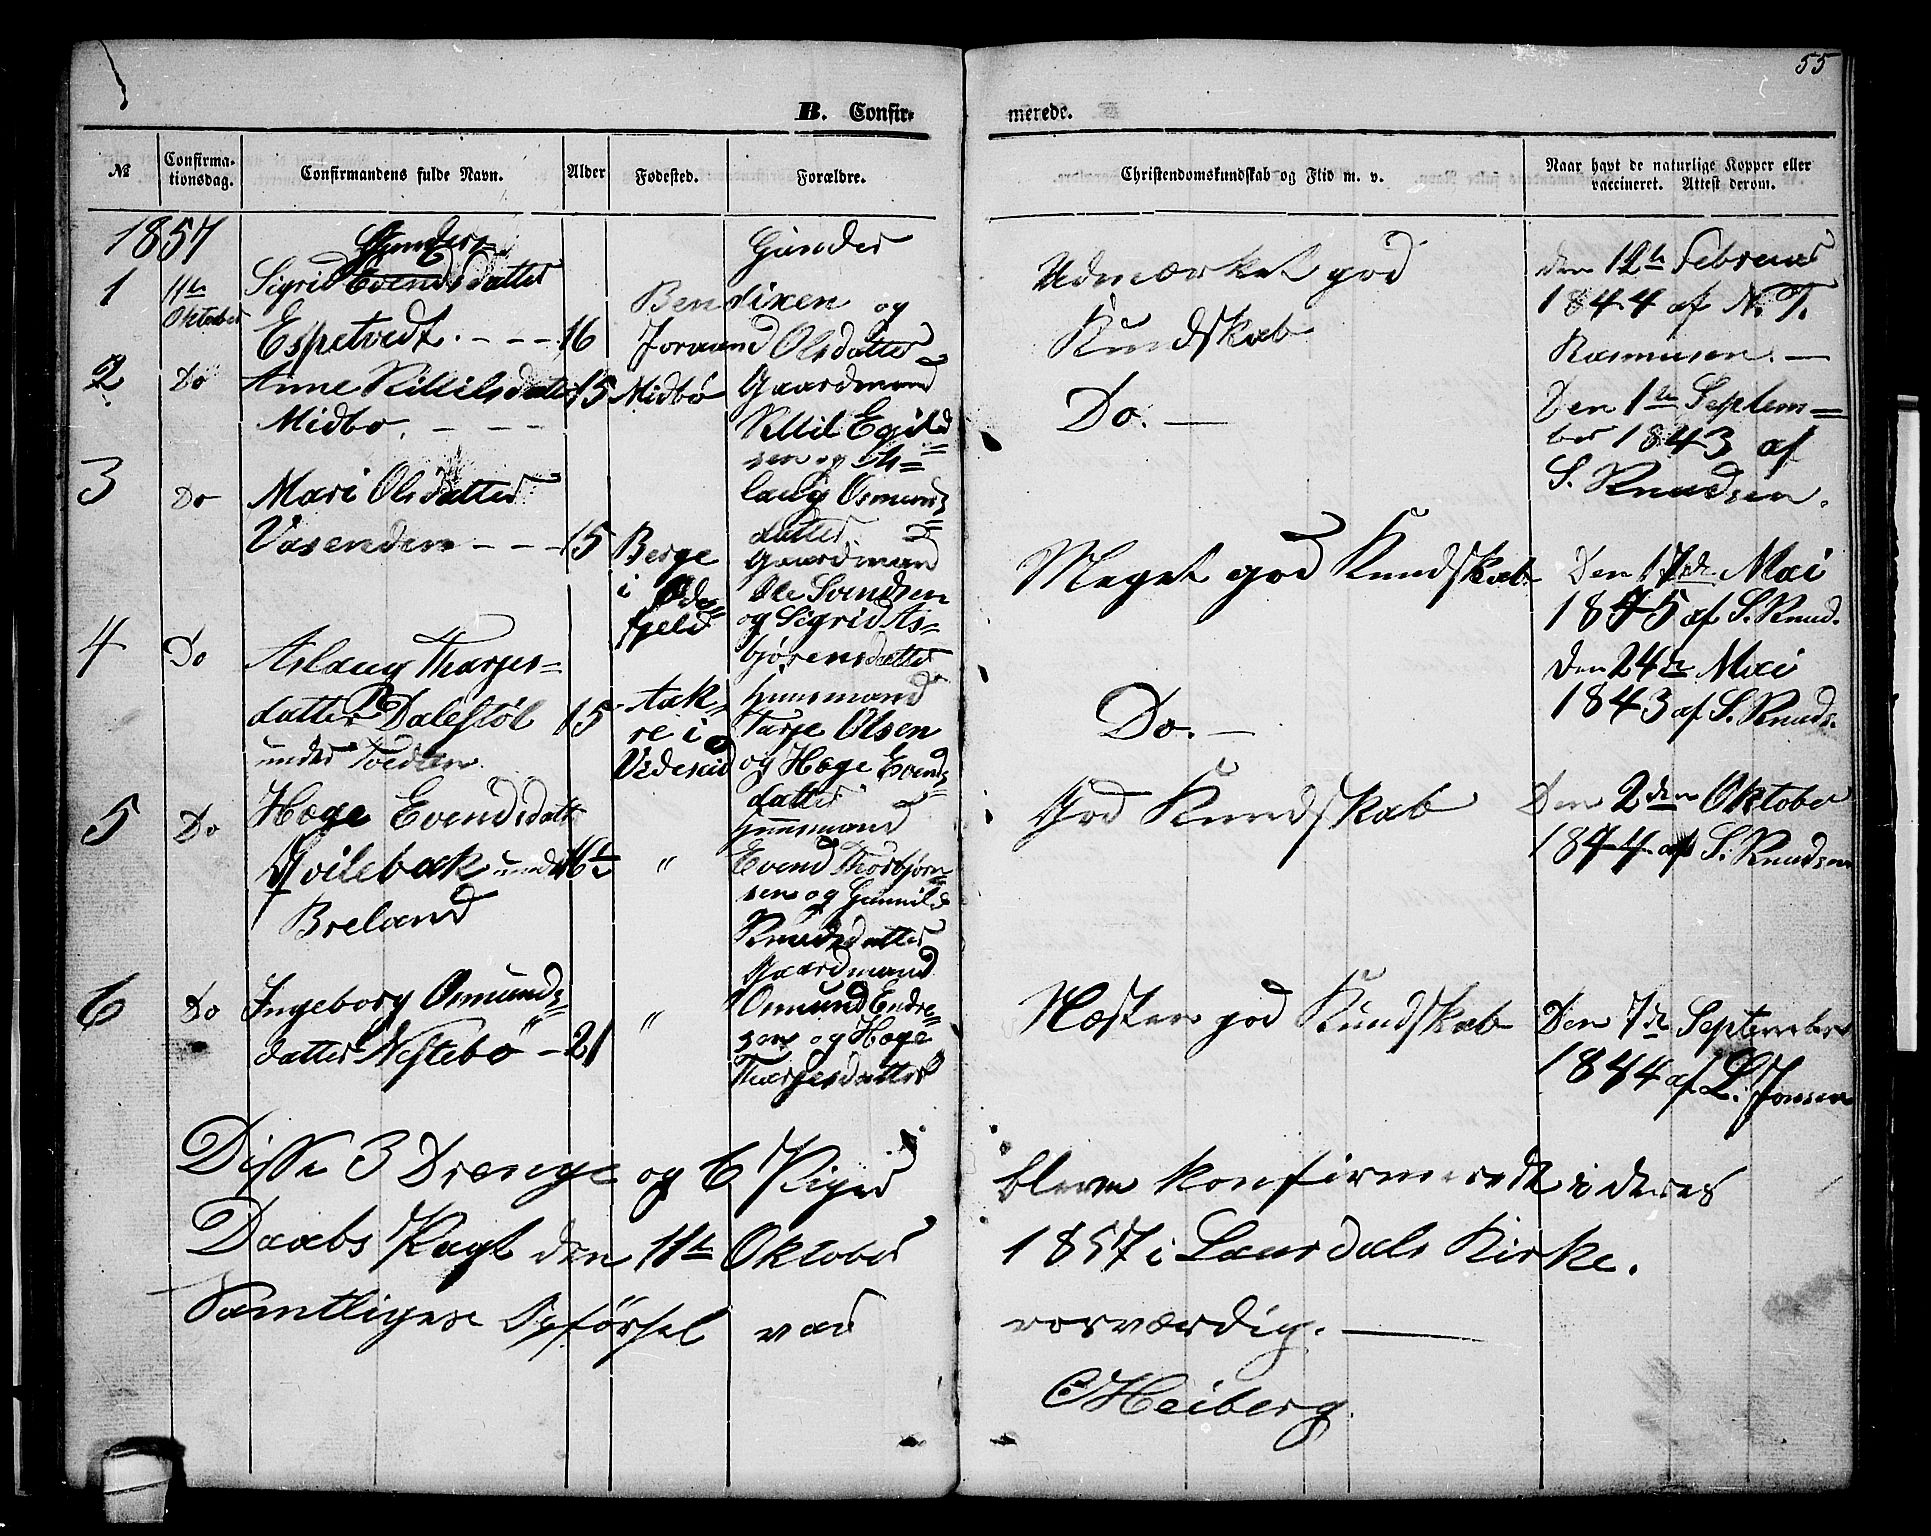 55
B. Confir-
merede.
№
Confirma-
tionsdag.
Confirmandens fulde Navn.
Alder
Fødested.
Forældre.
Christendomskundskab og Flid m. v.
Naar havt de naturlige Kopper eller
vaccineret. Attest derom.
1857
1
11te
Oktober
Gunders=
Sigrid Evendsdatter
Espetvedt. - - -
16
Gunder
Bendixen og
Joraand Olsdatter
Udmærket god
Kundskab
den 12te Februar
1844 af N. T.
Rasmusen. —
2
Do
Anne Killilsdatter
Midbø. - - -
15
Midbø
Gaardmand
Killil Egild
sen og As=
laug Osmunds
datter
Do. —
Den 1te Septem=
ber 1843 af
S. Knudsen.
3
Do
Mari Olsdatter
Vasenden - - -
15
Berge
i
fjeld
Gaardmand
Ole Svendsen
og Sigrid As=
bjørensdatter
Meget god Kundskab
Den 17de Mai
1845 af S. Knud.
4
Do
Aslaug Tharjes=
datter Dalestøl
under Tvedten
15
Aak-
re i
Videseid
Huusmand
Tarje Olsen
og Hæge Evends
datter
Do. —
Den 24de Mai
1843 af S. Knuds.
5
Do
Hæge Evendsdatt
Qvilebæk under
Breland
16½
"
Huusmand
Evend Thorbjørn
sen og Gunnild
Knudsdatter
God Kundskab
Den 2den Oktober
1844 af S. Knudsen
6
Do
Ingeborg Osmunds=
datter Nestebø -
21
"
Gaardmand
Osmund Endre=
sen og Hæge
Tharjesdatter
Næsten god Kundskab
Den 7de September
1844 af L. Jonsen
Disse 3 Drenge og 6 Piger bleve konfirmerede i deres
Daabs Pagt den 11te Oktober 1857 i Laurdals Kirke.
Samtliges Opførsel var rosværdig. —
C Heiberg.